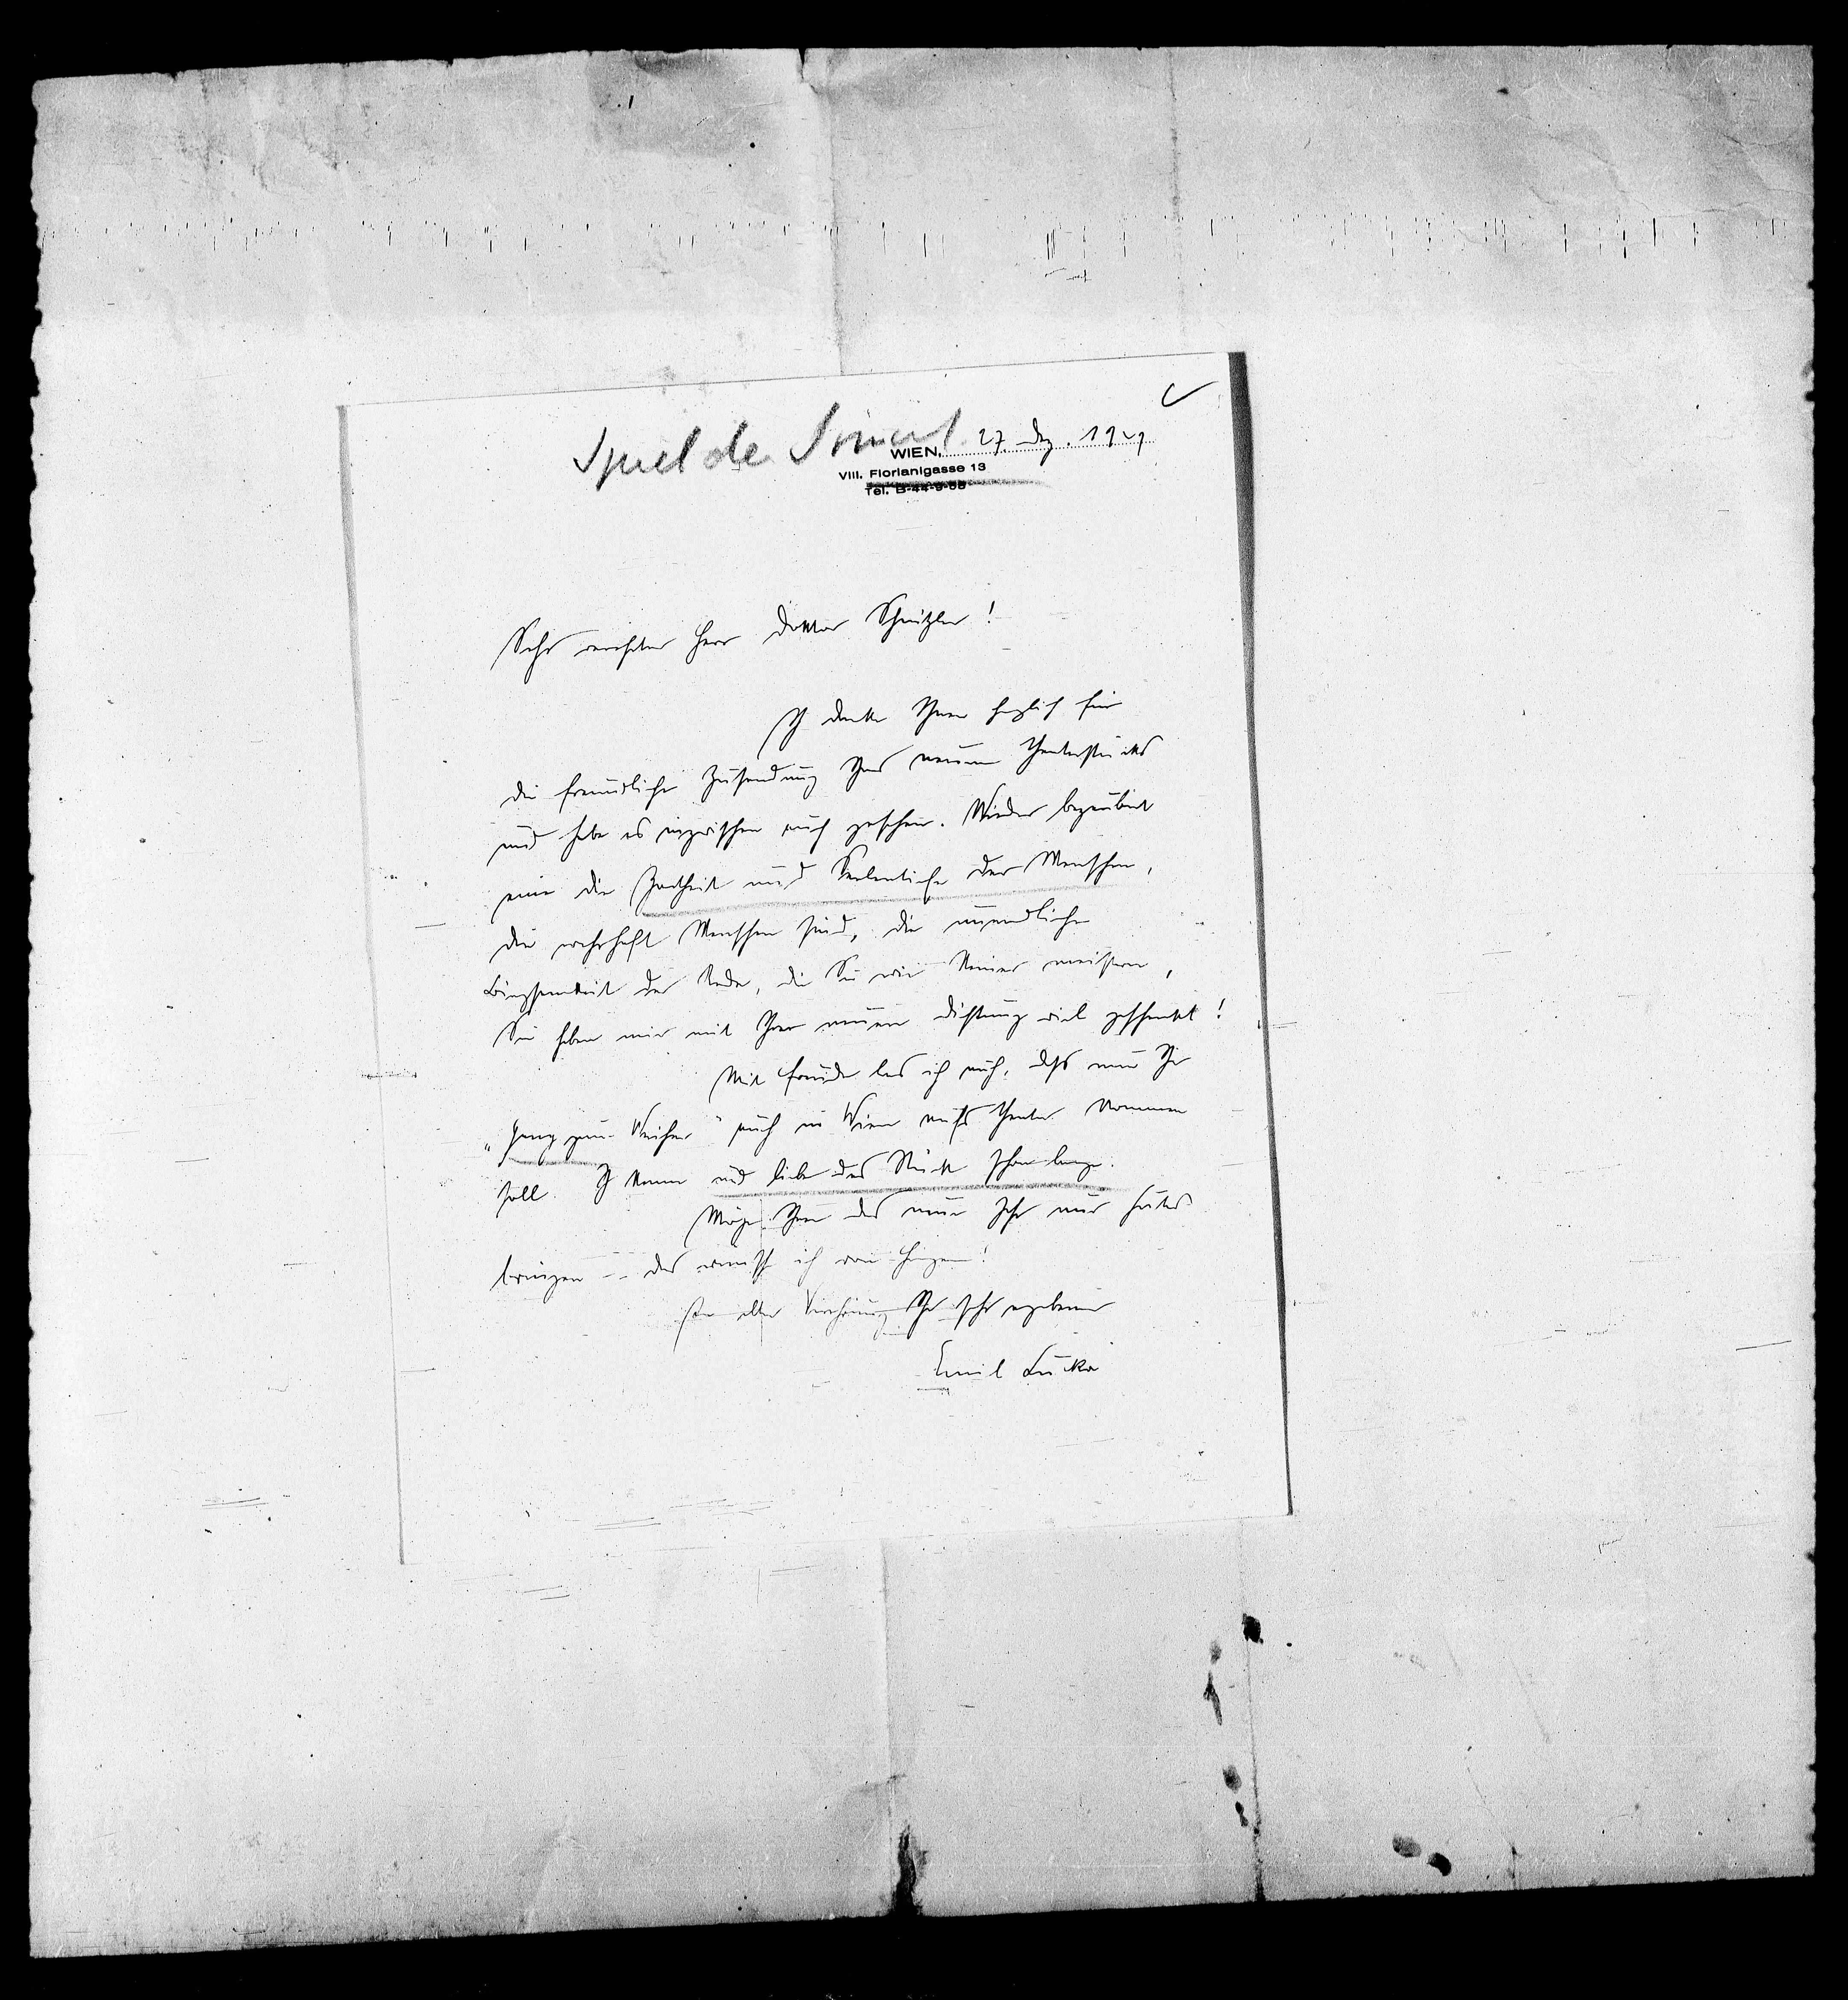 Spiel de Somerl
WIEN, 27. Dez. 1929
VIII. Florianigasse 13
Tel. B-44-9-
Sehr verehrter Herr Doktor Schnitzler!
Ich danke Ihnen herzlich für
die freundliche Zusendung Ihres neuen Theaterstücks
und habe es inzwischen auch gesehen. Wieder bezaubert
mir die Zartheit und Seelentiefe der Menschen,
die wahrhaft Menschen sind, die unendliche
Biegsamkeit der Rede, die Sie wie Keiner meistern,
Sie haben mir mit Ihrer neuen Dichtung viel geschenkt!
Mit Freude las ich auch, dass nun Ihr
„Gang zum Weiher" auch in Wien aufs Theater kommen
soll. Ich kenne und liebe das Stück schon lange.
Möge Ihnen das neue Jahr nur Gutes
bringen – das wünsch ich von Herzen!
In alter Verehrung Ihr sehr ergebener
Emil Lucka